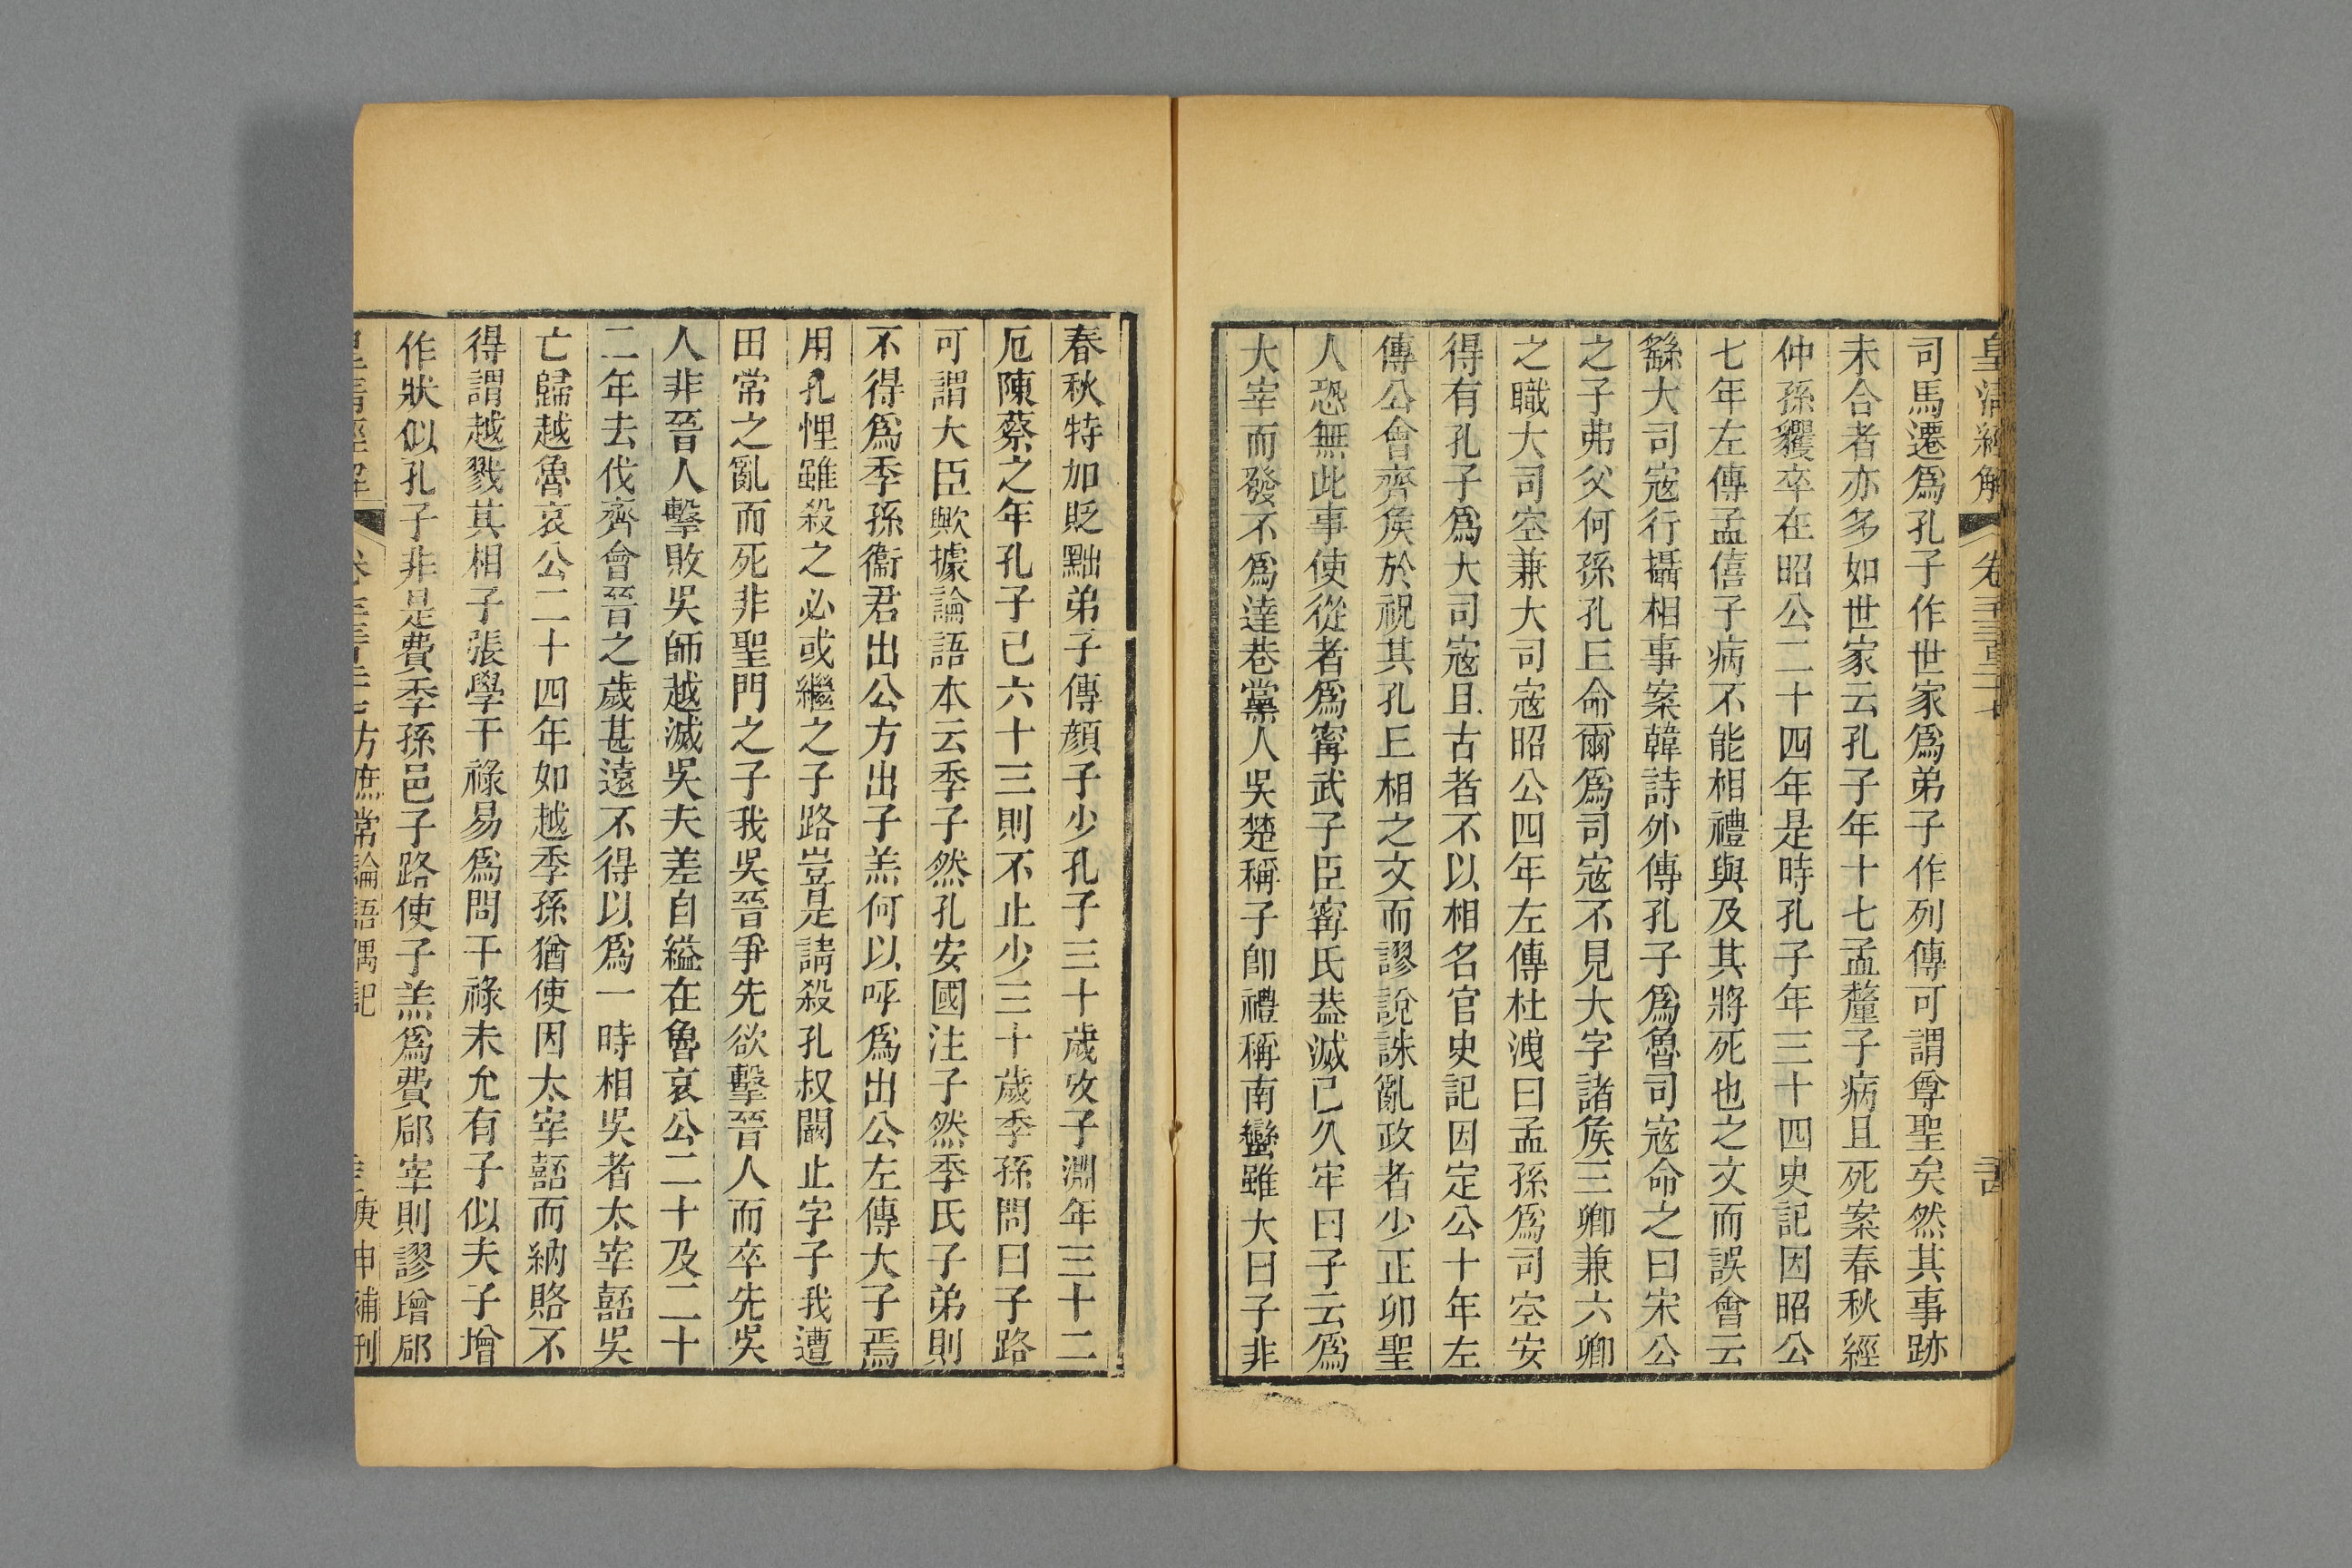 皇清經解 卷
司馬遷爲孔子作世家爲弟子作列傳可謂尊聖矣然其事跡
未合者亦多如世家云孔子年十七孟釐子病且死案春秋經
仲孫貜卒在昭公二十四年是時孔子年三十四史記因昭公
七年左傳孟僖子病不能相禮與及其將死也之文而誤會云
繇大司寇行攝相事案韓詩外傳孔子爲魯司寇命之曰宋公
之子弗父何孫孔𠀉命爾爲司寇不見大字諸矦三卿兼六卿
之職大司空兼大司寇昭公四年左傳杜洩曰孟孫爲司空安
得有孔子爲大司寇且古者不以相名官史記因定公十年左
傳公會齊矦於祝其孔𠀉相之文而謬說誅亂政者少正卯聖
人恐無此事使從者爲甯武子臣甯氏葢滅已久牢曰子云爲
大宰而發不爲達巷黨人吳楚稱子卽禮稱南蠻雖大曰子非
春秋特加貶黜弟子傳顏子少孔子三十歲攷子淵年三十二
厄陳蔡之年孔子已六十三則不止少三十歲季孫問曰子路
可謂大臣歟據論語本云季子然孔安國注子然季氏子弟則
不得爲季孫衞君出公方出子羔何以呼爲出公左傳大子焉
用孔悝雖殺之必或繼之子路豈是請殺孔叔闞止字子我遭
田常之亂而死非聖門之子我吳晉爭先欲擊晉人而卒先吳
人非晉人擊敗吳師越滅吳夫差自縊在魯哀公二十及二十
二年去伐齊會晉之歲甚遠不得以爲一時相吳者太宰嚭吳
亡歸越魯哀公二十四年如越季孫猶使因太宰嚭而納賂不
得謂越戮其相子張學干祿易爲問干祿未允有子似夫子增
作狀似孔子非是費季孫邑子路使子羔爲費郈宰則謬增郈
皇清經解 方庶常論語偶記 庚申補刊